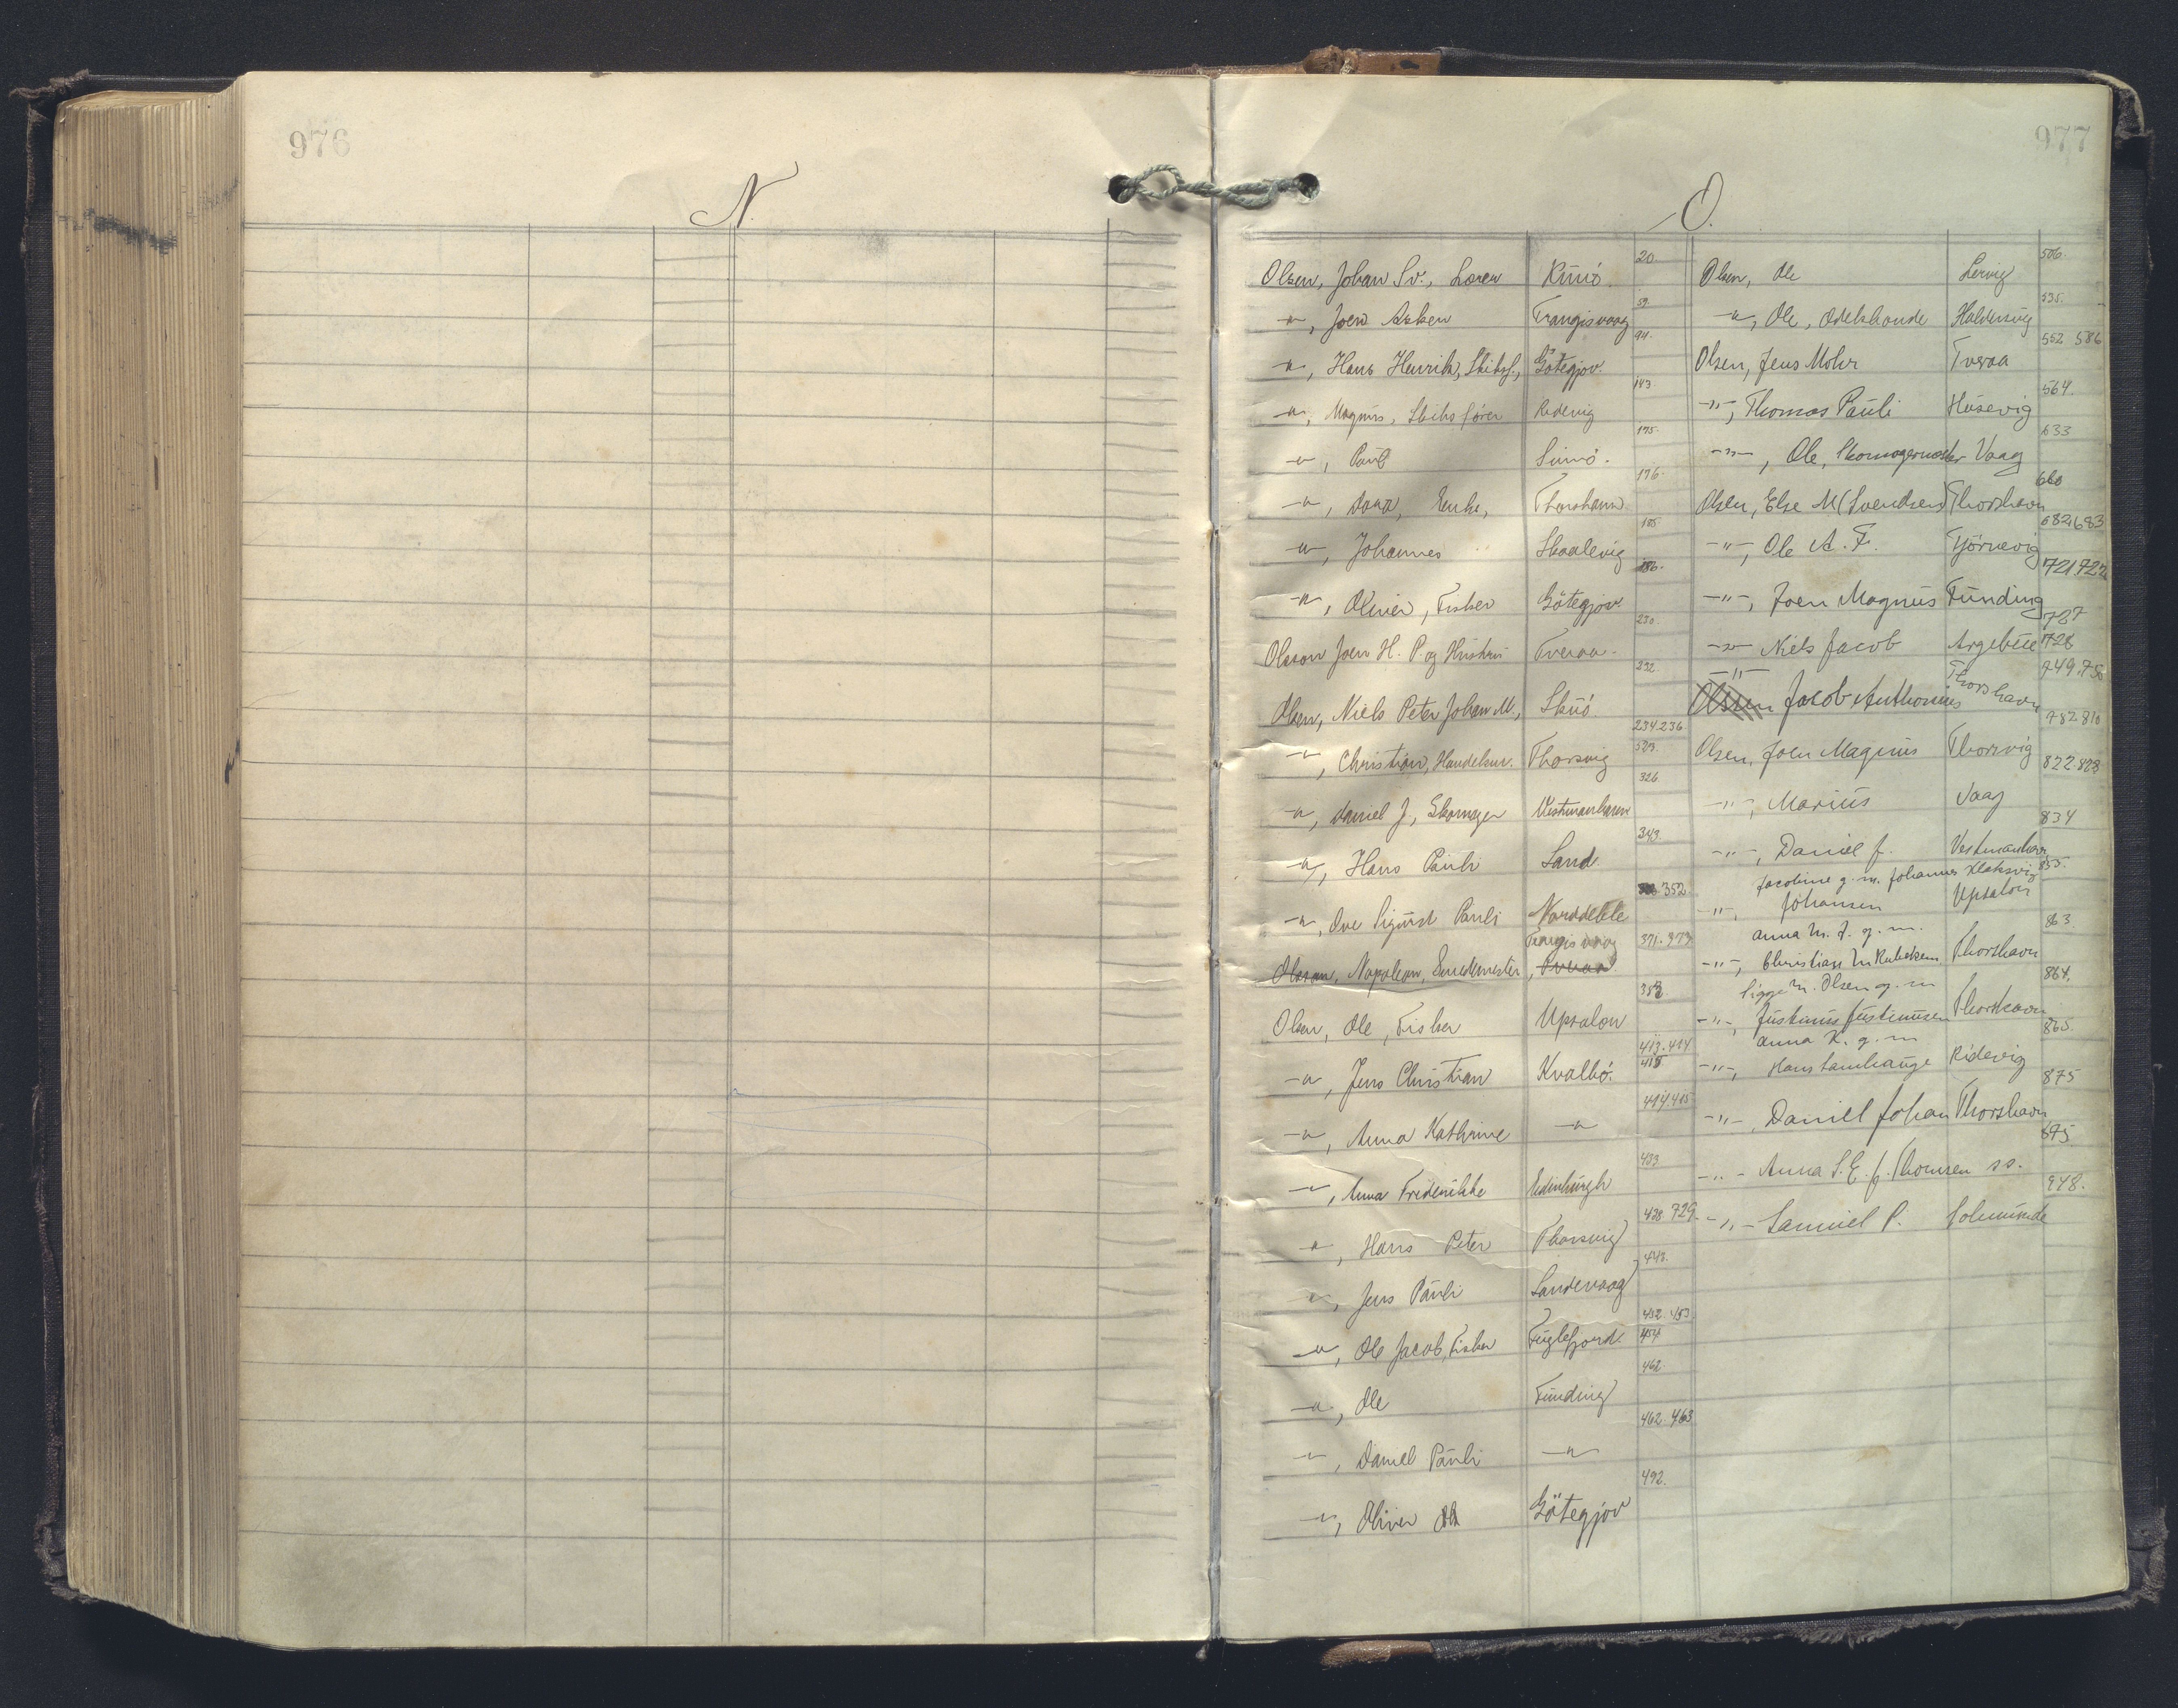 976
N.
977
O.
20.
Olsen, Johan Sv.,
59.
-"-, Joen
Trangisvaag
94.
-"-, Hans Henrik, Skibsf., Götegjov.
143
-"-, Magnus, Skibsfører Ridevig
175.
-"-, Paul
176.
-"-, Enke, Thorshavn
185.
-"-, Johannes Skaalevig
186.
-"-, Oliver, Fisker Götegjov.
230.
Olsson Joen H. P. og Hustru Tveraa
232.
Olsen, Niels Peter Johan M., Skuö
234.236
-"-, Christian, Handelsm. Thorsvig
326
-"-, Daniel J., Skomager Vestmanhavn
343.
-"-, Hans Pauli Sand
352
-"-, Ove Sigurd Pauli Norddeble
Trangisvaag 371.373.
Olsson, Napoleon, Smedemester, Tveraa
Olsen, Ole, Fisker Upsalon
413.414
415
-"-, Jens Christian Kvalbö.
414.415
-"-, Anna Kathrine -"-
433.
-"-, Anna Frederikke Edinburgh
428 729.
-"-, Hans Peter Thorsvig
443.
-"-, Jens Pauli Sandevaag
452.453.
454
-"-, Ole Jacob, Fisker Fuglefjord.
462.
-"-, Ole Funding
462.463
-"-, Daniel Pauli -"-
492.
-"-, Oliver Götegjov
506.
Olsen, Ole Lervig
535.
-"-, Ole, Odelsbonde Haldersvig
552 586
Olsen, Jens Mohr Tveraa
564.
-"-, Thomas Pauli Husevig
633
-"-, Ole, Skomagermester Vaag
660
Olsen, Else M (Svendsen) Thorshavn
682,683
-"-, Ole A. F. Tjörnevig
721 722
-"-, Joen Magnus Funding
727
728
-"- Niels Jacob Argeböe
749.750
-"-
Olsen Jacob Anthonius Thorshavn
782 810
Olsen, Joen Magnus Thorsvig
822.823
-"-, Marius Vaag
834
-"-, Daniel J. Vestmanhavn
855.
Jacobine g. m. Johannes Klaksvig
-"-, Johansen Upsalon
863
Anna M. J. g. m.
-"-, Christian M Rubeksen Thorshavn
864.
Sigga M. Olsen g. m
-"-, Justinus Justinussen Thorshavn
865.
Anna K. g. m
-"-, Hans Lamhauge Ridevig
875
-"-, Daniel Johan Thorshavn
-"- Anna S. E. f. Thomsen ss.
948.
-"- Samuel P. Solmunde